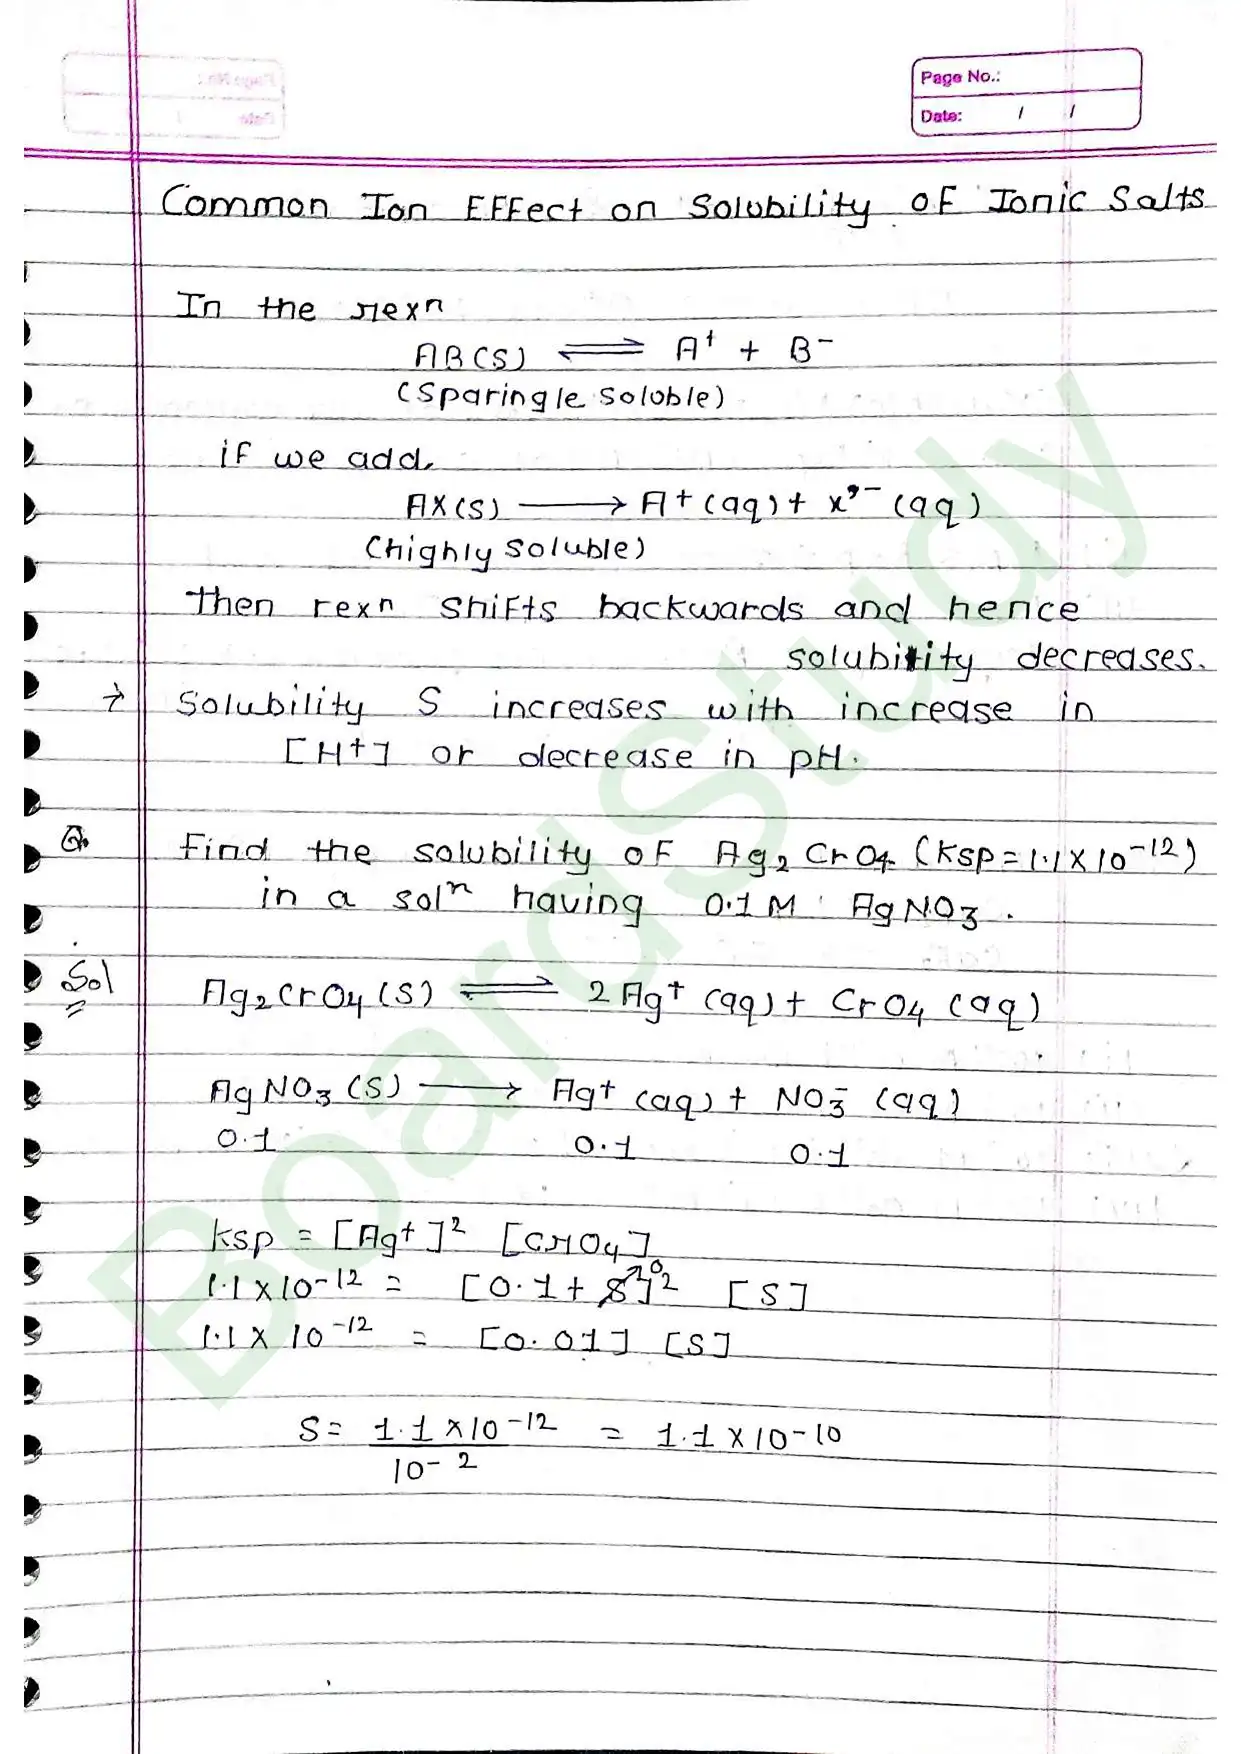 Page No.:
Date: / /
Common Ion Effect on Solubility of Ionic Salts
In the rexn
AB(s) ⇌ A⁺ + B⁻
(Sparingle soluble)
if we add
AX(s) ⟶ A⁺(aq) + x⁻(aq)
(highly soluble)
Then rexn shifts backwards and hence
solubility decreases.
→ Solubility S increases with increase in
[H⁺] or decrease in pH.
Q. Find the solubility of Ag₂CrO₄ (Ksp = 1.1 x 10⁻¹²)
in a solⁿ having 0.1 M AgNO₃.
Sol Ag₂CrO₄(s) ⇌ 2Ag⁺(aq) + CrO₄(aq)
AgNO₃(s) ⟶ Ag⁺(aq) + NO₃⁻(aq)
0.1 0.1 0.1
Ksp = [Ag⁺]² [CrO₄]
1.1 x 10⁻¹² = [0.1 + S↗⁰]² [S]
1.1 x 10⁻¹² = [0.01] [S]
S = 1.1 x 10⁻¹² / 10⁻² = 1.1 x 10⁻¹⁰
BoardStudy